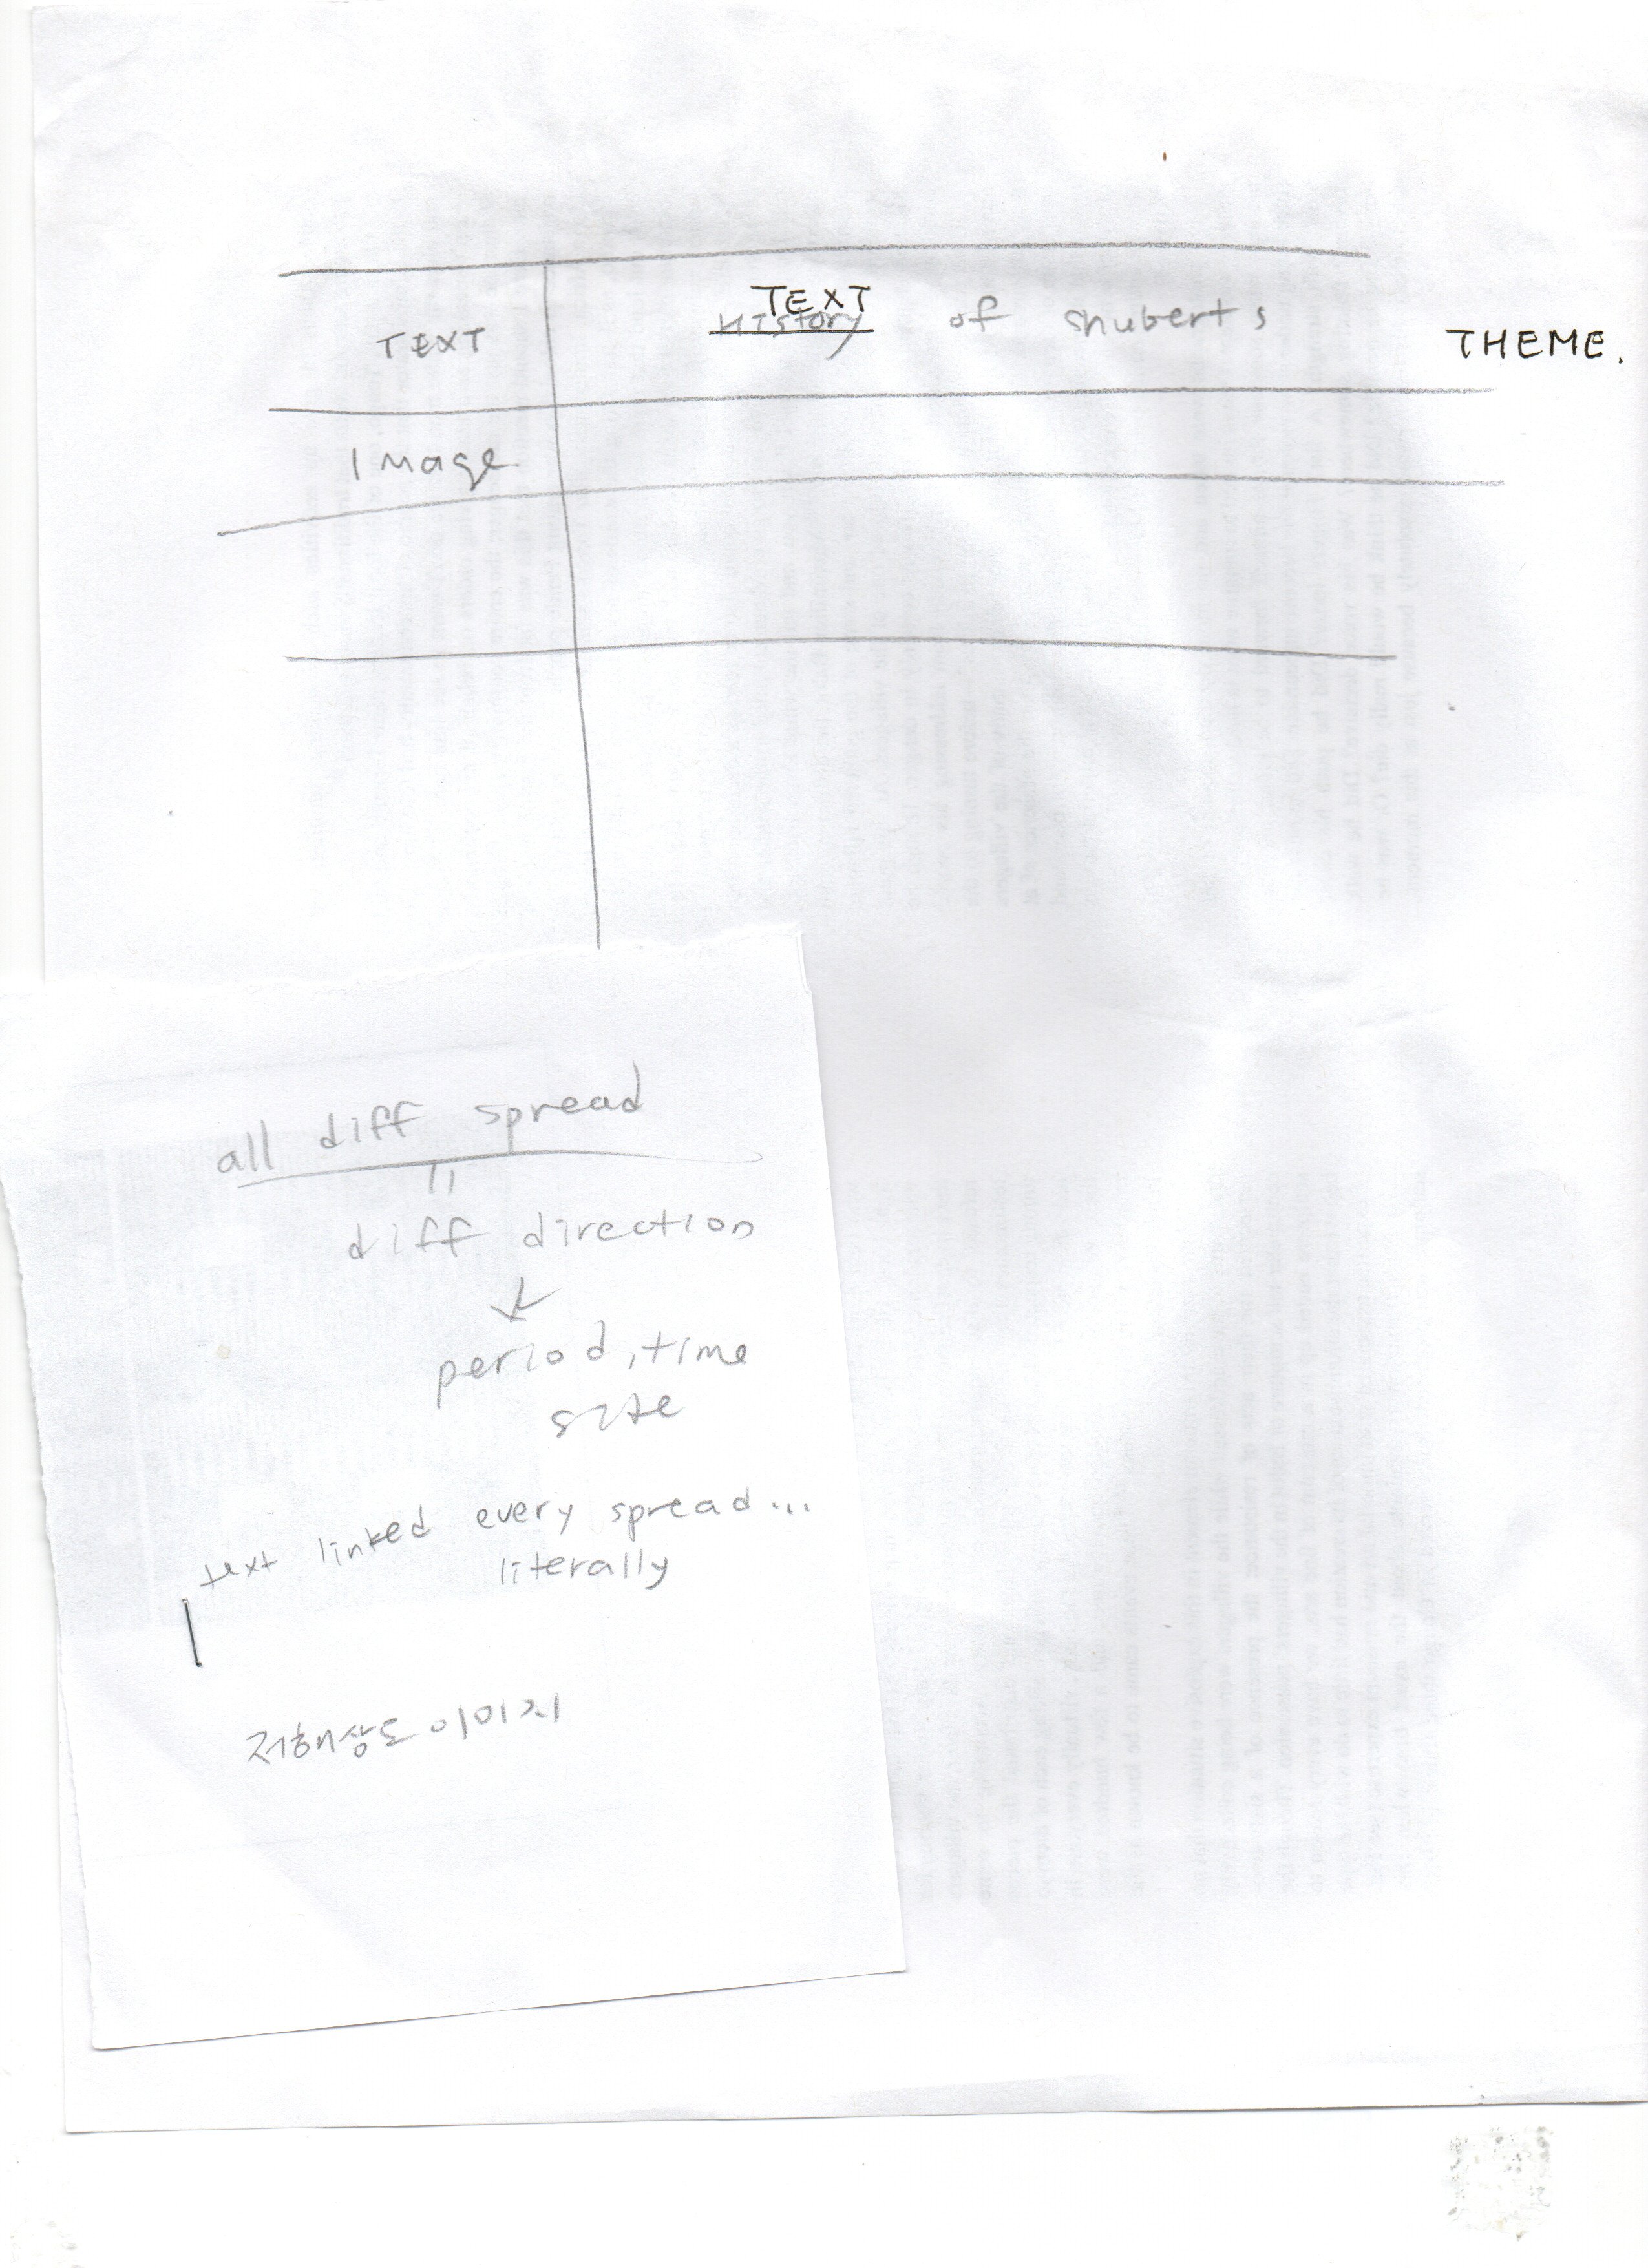 TEXT
TEXT
History of shuberts
THEME.
Image
all diff spread
diff direction
period, time
text linked every spread...
literally
저해상도 이미지